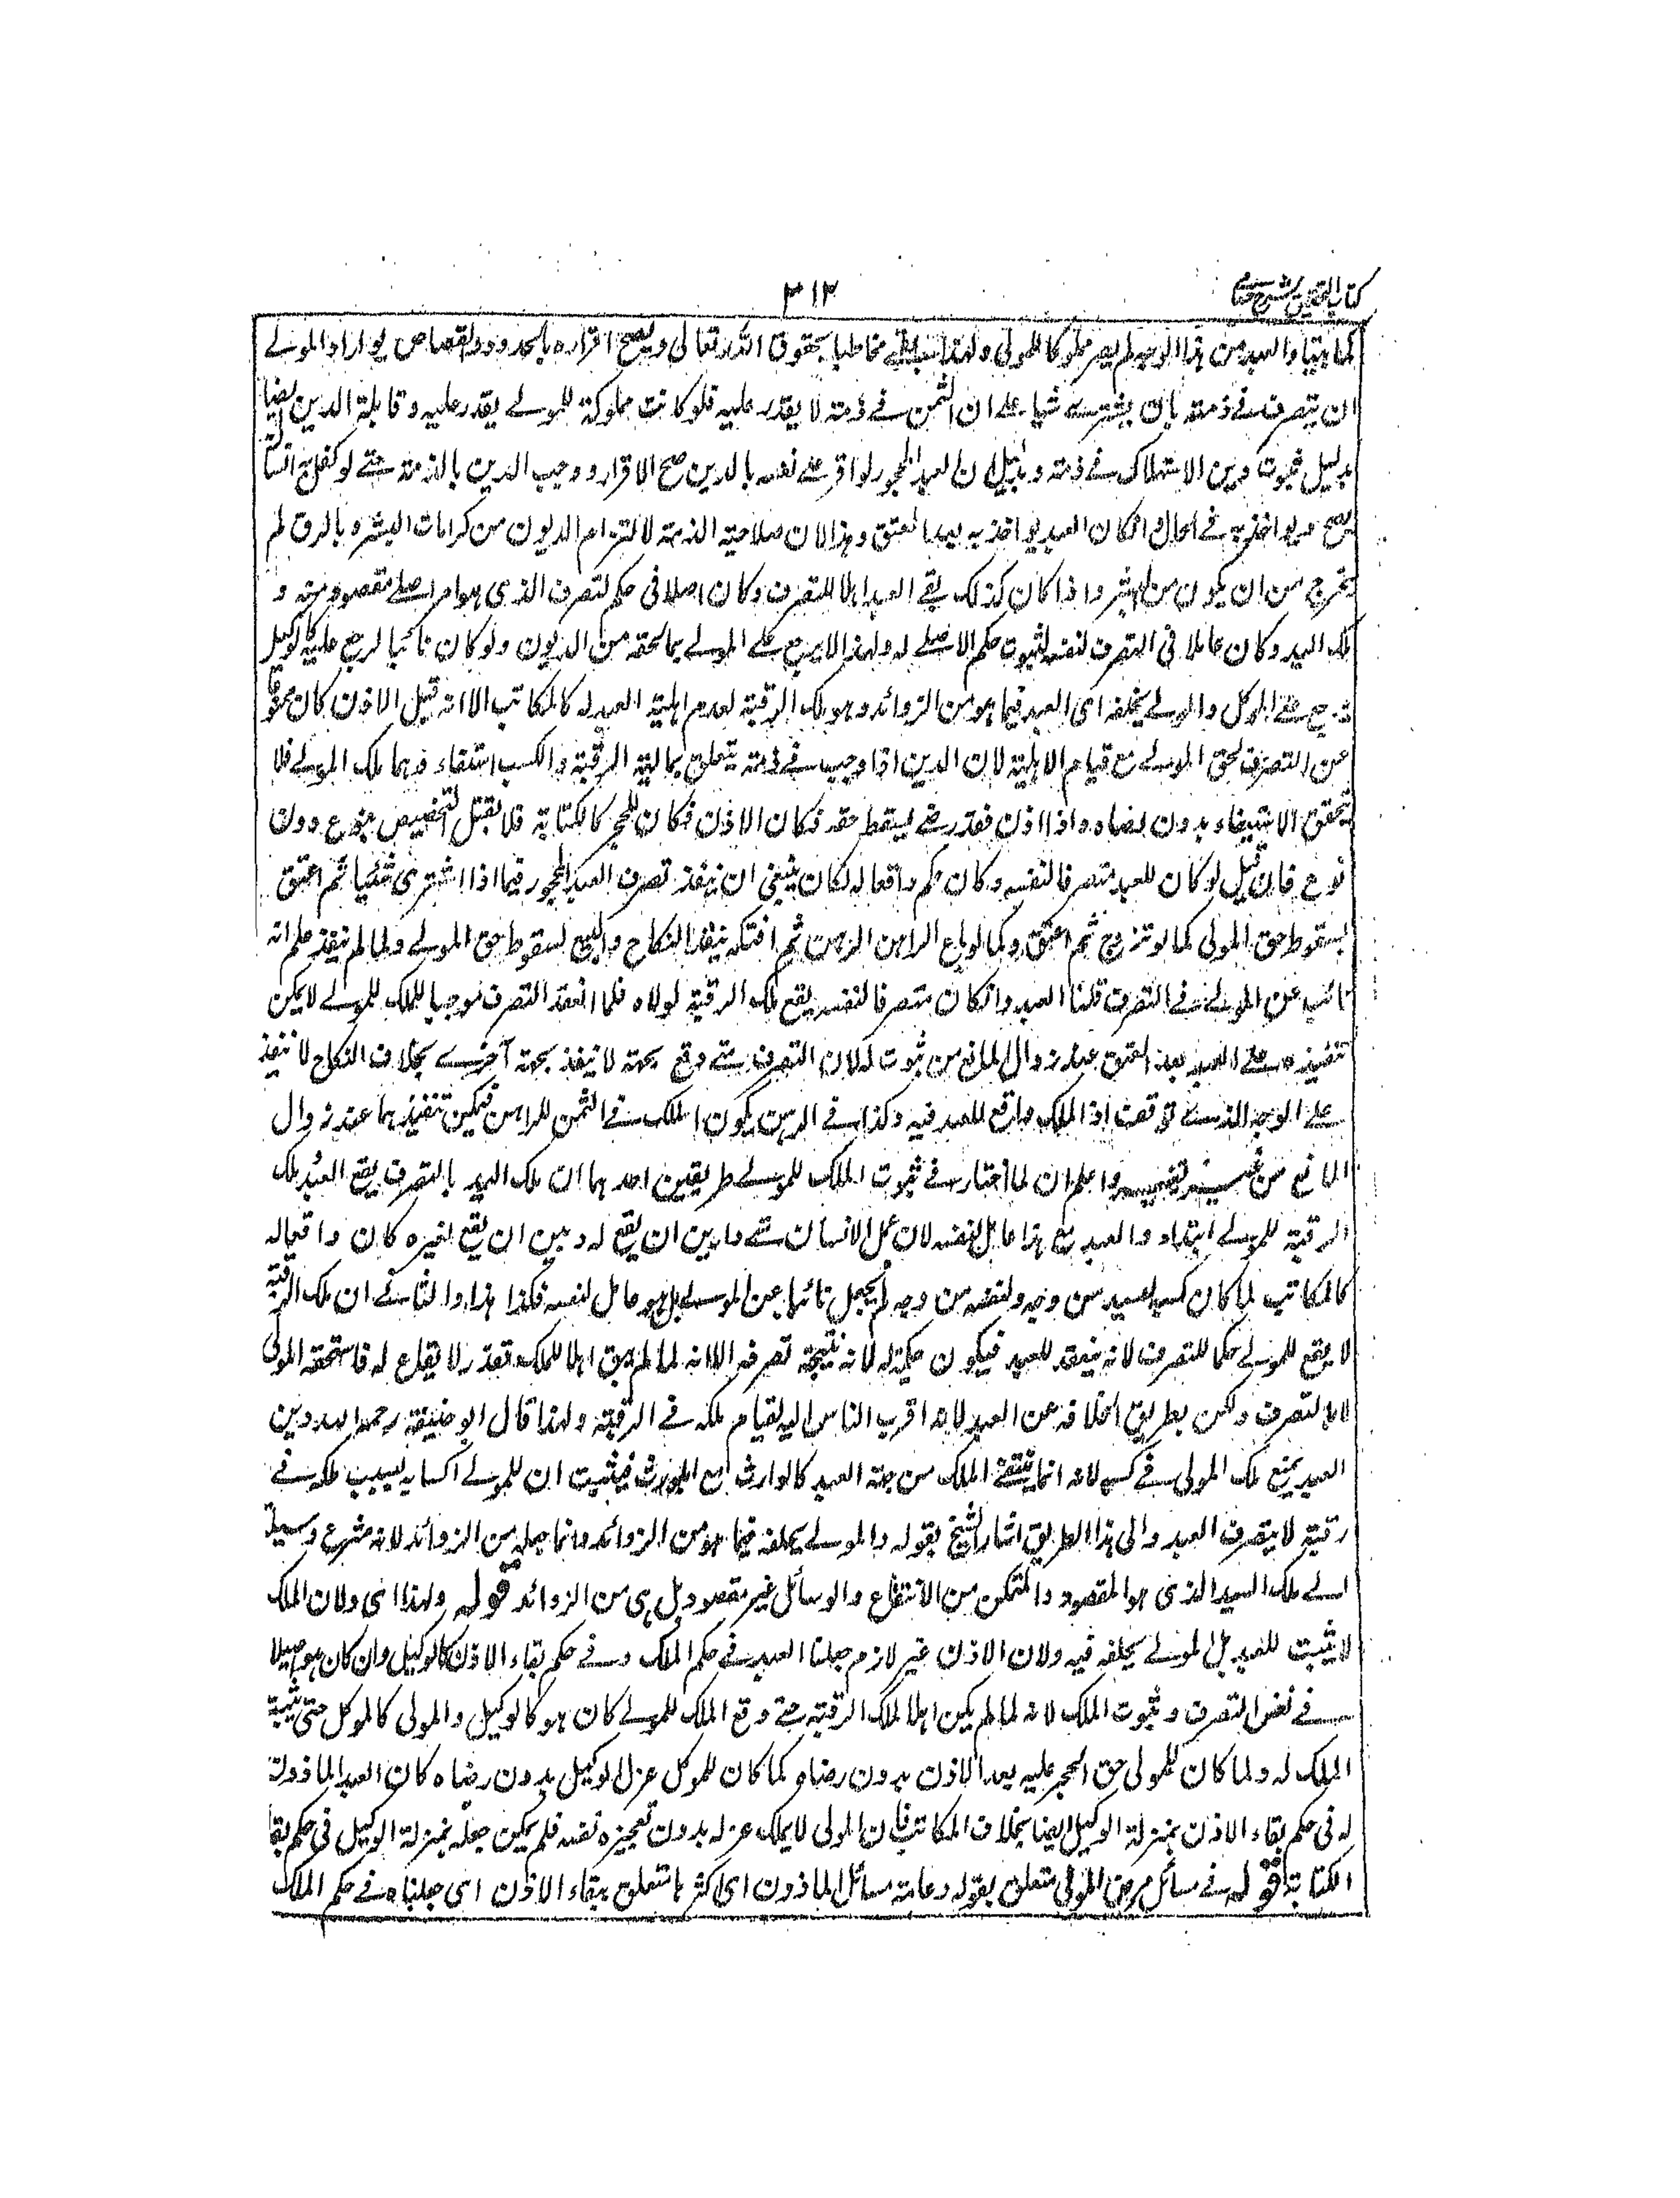 كتاب التحقيق شرح حسامى
٣١٢
كما بينا والعبد من هذا الوجه لم يصر مملوكا للمولى ولهذا يبقى مخاطبا بحقوق الله تعالى ويصح اقراره بالحدود والقصاص لو اراد المولى
ان يتصرف فى ذمته بان يشترى شيا على ان الثمن فى ذمته لا يقدر عليه فلو كانت مملوكة للمولى يقدر عليه وقابلة الدين ايضا
بدليل ثبوت دين الاستهلاك فى ذمته وبدليل ان العبد المحجور لو اقر على نفسه بالدين صح الاقرار ووجب الدين بالذمة حتى لو كفل به انسان
يصح ويواخذ به فى الحال وان كان العبد يواخذ به بعد العتق وهذا لان صلاحية الذمة لالتزام الديون من كرامات البشر وبالرق لم
يخرج من ان يكون من البشر واذا كان كذلك بقى العبد اهلا للتصرف وكان اصلا فى حكم التصرف الذى هو امر اصلى مقصود منه و
ملك اليد وكان عاملا فى التصرف لنفسه لثبوت حكم الاصلى له ولهذا لا يرجع على المولى بما لحقه من الديون ولو كان نائبا لرجع عليه كالوكيل
يرجع على الموكل والمولى يخلفه اى العبد فيما هو من الزوائد وهو ملك الرقبة لعدم اهلية العبد له كالمكاتب الا انه قبل الاذن كان ممنوعا
عن التصرف لحق المولى مع قيام الاهلية لان الدين اذا وجب فى ذمته يتعلق بمالية الرقبة والكسب استيفاء وهما ملك المولى فلا
يتحقق الاستيفاء بدون رضاه واذا اذن فقد رضى بسقوط حقه فكان الاذن فكان للحجر كالكتابة فلا يقبل التخصيص بنوع دون
نوع فان قيل لو كان للعبد متصرفا لنفسه وكان حكمه واقعا له لكان ينبغى ان ينفذ تصرف العبد المحجور فيما اذا اشترى شيئا ثم اعتق
بسقوط حق المولى كما لو تزوج ثم اعتق وكما لو باع الراهن الرهن ثم افتكه ينفذ النكاح والبيع لسقوط حق المولى ولما لم ينفذ علم انه
نائب عن المولى فى التصرف قلنا العبد وان كان متصرفا لنفسه يقع ملك الرقبة لمولاه فلما انعقد التصرف موجبا للملك للمولى لا يمكن
تنفيذه على العبد بعد العتق عند زوال المانع من ثبوت له لان التصرف متى وقع بجهة لا ينفذ بجهة اخرى بخلاف النكاح لانه ينفذ
على الوجه الذى توقف اذ الملك واقع للعبد فيه وكذا فى الرهن يكون الملك فى الثمن للراهن فيمكن تنفيذهما عند زوال
المانع من غير تغيير واعلم ان لما اختار فى ثبوت الملك للمولى طريقين احدهما ان ملك اليد بالتصرف يقع للعبد وملك
الرقبة للمولى ابتداء والعبد مع هذا عامل لنفسه لان عمل الانسان متى دار بين ان يقع له وبين ان يقع لغيره كان واقعا له
كالمكاتب لما كان كسبه لسيده من وجه ولنفسه من وجه لم يجعل نائبا عن المولى بل هو عامل لنفسه فكذا هذا والثانى ان ملك الرقبة
لا يقع للمولى حكما للتصرف لانه ينعقد للعبد فيكون حكمه له لانه نتيجة تصرفه الا انه لما لم يبق اهلا للملك وتعذر الايقاع له فاستحقه المولى
لا بالتصرف ولكن بطريق الخلافة عن العبد لانه اقرب الناس اليه لقيام ملكه فى الرقبة ولهذا قال ابو حنيفة رحمه الله دين
العبد يمنع ملك المولى فى كسبه لانه انما يتلقى الملك من جهة العبد كالوارث مع المورث فيثبت ان للمولى اكسابه بسبب ملكه فى
رقبته لا بتصرف العبد والى هذا الطريق اشار الشيخ بقوله والمولى يخلفه فيما هو من الزوائد وانما جعله من الزوائد لانه شرع وسيلة
الى ملك اليد الذى هو المقصود والتمكن من الانتفاع والوسائل غير مقصود بل هى من الزوائد قوله ولهذا اى ولان الملك
لا يثبت للعبد بل المولى يخلفه فيه ولان الاذن غير لازم جعلنا العبد فى حكم الملك وفى حكم بقاء الاذن كالوكيل وان كان هو اصيلا
فى نفس التصرف وثبوت الملك لانه لما لم يكن اهلا لملك الرقبة حتى وقع الملك للمولى كان هو كالوكيل والمولى كالموكل حتى يثبت
الملك له ولما كان للمولى حق الحجر عليه بعد الاذن بدون رضاه كما كان للموكل عزل الوكيل بدون رضاه كان العبد الماذون
له فى حكم بقاء الاذن بمنزلة الوكيل ايضا بخلاف المكاتب فان المولى لا يملك عزله بدون تعجيزه نفسه فلم يمكن جعله بمنزلة الوكيل فى حكم بقاء
الكتابة قوله فى مسائل مرض المولى متعلق بقوله وعامة مسائل الماذون اى اكثر ما تتعلق ببقاء الاذن اى جعلناه فى حكم الملك